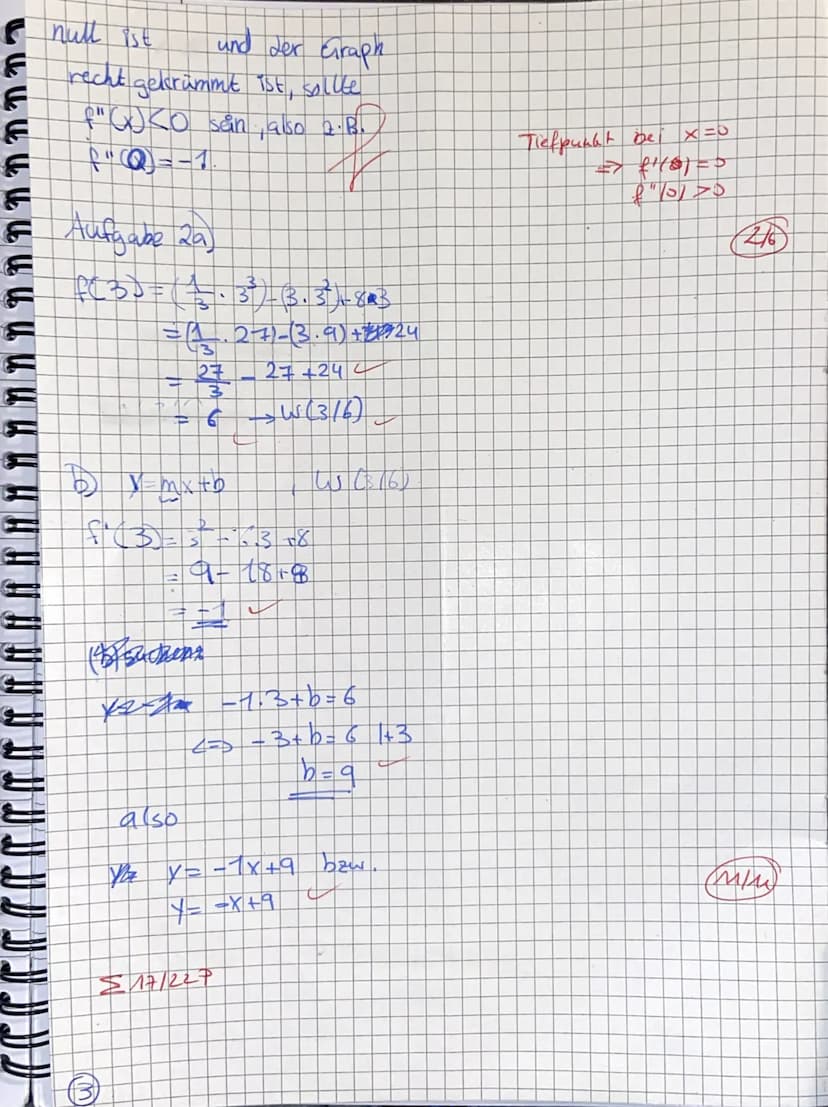 null ist und der Graph
recht gekrümmt ist, sollte
f''(x)<0 sein, also z.B.
f''(0)=-1. f
Tiefpunkt bei x=0
=> f'(0)=0
f''(0)>0
2/6
Aufgabe 2a)
f(3)=(1/3 · 3³)-(3·3²)+8·3
=(1/3 · 27)-(3·9)+24
= 27/3 - 27+24
= 6 → W(3/6)
b) y=mx+b , W(3/6)
f'(3)=3²-6·3+8
= 9-18+8
= -1
-1·3+b=6
<=> -3+b=6 |+3
b=9
also
y=-1x+9 bzw.
y=-x+9
11/11
Σ 17/22P
3